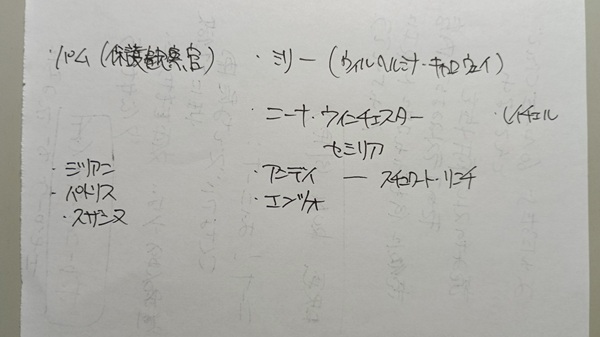 ・パム(保護観察官) ・ミリー(ウィルヘルミナ・キャロウェイ)
・ニーナ・ウィンチェスター ・レイチェル
セシリア
・ジリアン ・アンディ — スチュワート・リンチ
・パトリス ・エンツォ
・スザンヌ